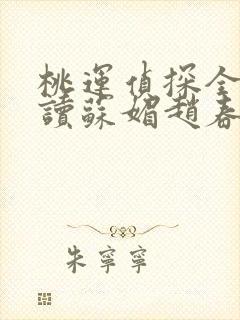 桃運偵探全
讀蘇媚趙春
朱寧寧